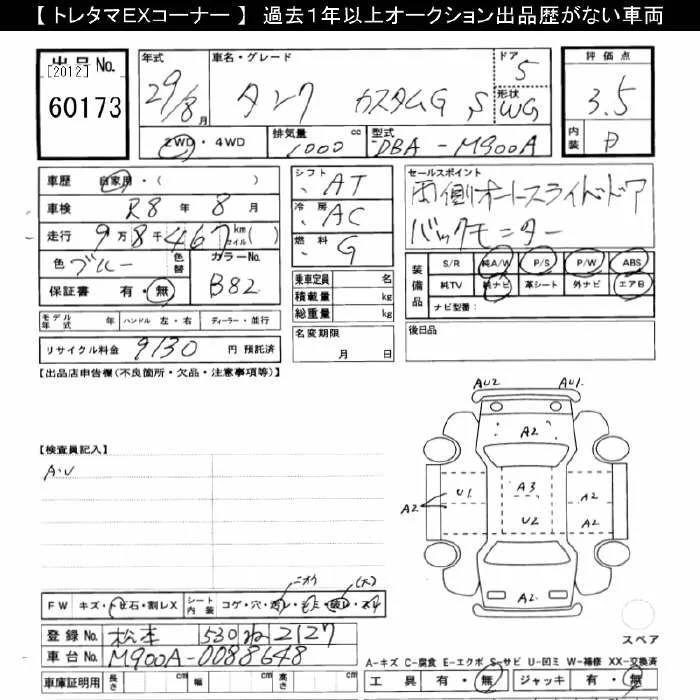 【トレタマEXコーナー】 過去1年以上オークション出品歴がない車両
出品No.
[2012]
60173
年式
29/8月
車名・グレード
タンク カスタムG S
ドア
5
形状
WG
評価点
3.5
内装
2WD・4WD
排気量
1000 cc
型式
DBA-M900A
車歴 自家用・( )
車検 R8年 8月
走行 9万8千467 km マイル( )
色 ブルー
色替
カラーNo.
B82
保証書 有・無
シフト AT
冷房 AC
燃料 G
乗車定員 名
積載量 kg
総重量 kg
名変期限
月 日
セールスポイント
両側オートスライドドア
バックモニター
装備品
S/R 純A/W P/S P/W ABS
純TV 純ナビ 革シート 外ナビ エアB
ナビ型番:
モデル年式 年 ハンドル 左・右 ディーラー・並行
後日品
リサイクル料金 9130 円 預託済
【出品店申告欄(不良箇所・欠品・注意事項等)】
【検査員記入】
A・U
AU2 AU1
A2
A2
U1
A3
A2
U2
A2
A2
FW キズ・トビ石・割レX
シート内装 コゲ・穴・
ニオイ
(大)
スペア
登録No. 松本 530 ね 2127
車台No. M900A-0088648
A-キズ C-腐食 E-エクボ S-サビ U-凹ミ W-補修 XX-交換済
車庫証明用 長さ cm 幅 cm 高さ cm
工具 有・無 ジャッキ 有・無